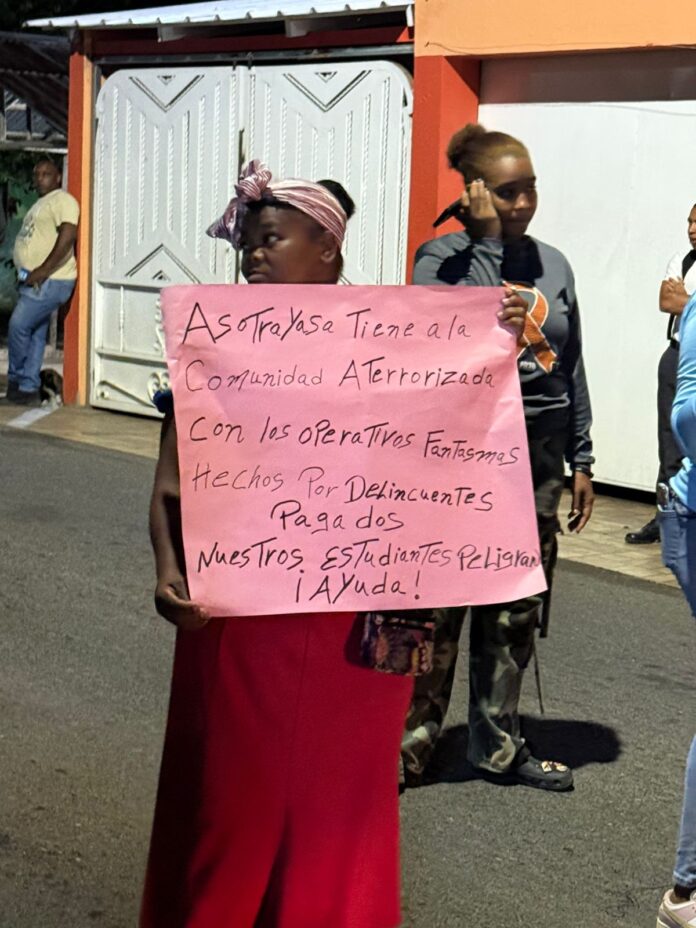 AsoTraYasa Tiene a la
Comunidad ATerrorizada
Con los operaTivos FanTasmas
Hechos Por DeLincuenTes
Pagados
NuesTros. EsTudianTes PeLigran
¡AYuda!